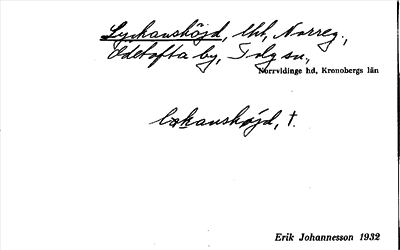 Lyckanshöjd, lht, Norreg.,
Odetofta by, Tolg sn,
Norrvidinge hd, Kronobergs län
lokanshøjd, †.
Erik Johannesson 1932